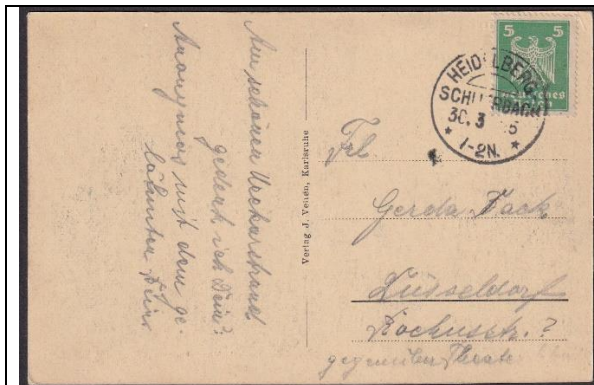 Am schönen Neckarstrand
gedenk ich Dein?
Anonymus mit dem ge-
lähmten Bein
Verlag J. Velten, Karlsruhe
5 5
Deutsches
HEIDELBERG
SCHLIERBACH
30. 3 5
* 1-2N. *
Frl
Gerda Fack
Düsseldorf
Rochusstr. ?
gegenüber Theater